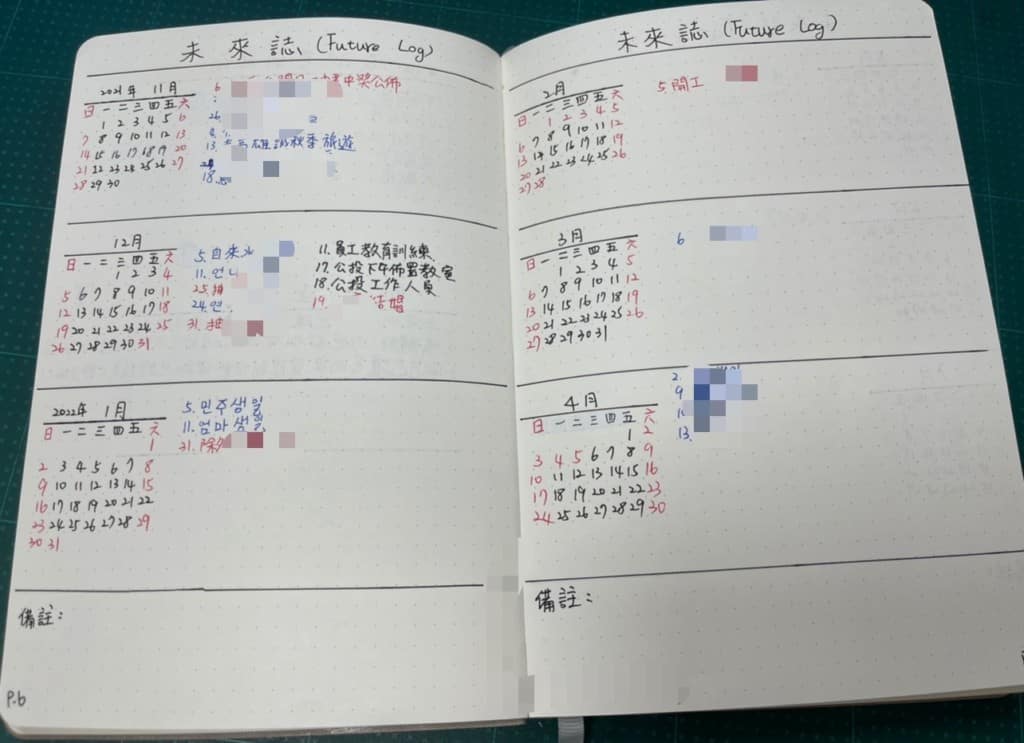 未來誌 (Future Log)
2021年 11月
日 一 二 三 四 五 六
1 2 3 4 5 6
7 8 9 10 11 12 13
14 15 16 17 18 19 20
21 22 23 24 25 26 27
28 29 30
6 中獎公佈
26.
13. 雄 秋季旅遊
18.
12月
日 一 二 三 四 五 六
1 2 3 4
5 6 7 8 9 10 11
12 13 14 15 16 17 18
19 20 21 22 23 24 25
26 27 28 29 30 31
5. 自來水
11. 언니
25.
24. 언
31.
11. 員工教育訓練
17. 公投下午佈置教室
18. 公投工作人員
19. 結婚
2022年 1月
日 一 二 三 四 五 六
1
2 3 4 5 6 7 8
9 10 11 12 13 14 15
16 17 18 19 20 21 22
23 24 25 26 27 28 29
30 31
5. 민주생일
11. 엄마생일
31. 除夕
備註：
P.6
未來誌 (Future Log)
2月
日 一 二 三 四 五 六
1 2 3 4 5
6 7 8 9 10 11 12
13 14 15 16 17 18 19
20 21 22 23 24 25 26
27 28
5. 開工
3月
日 一 二 三 四 五 六
1 2 3 4 5
6 7 8 9 10 11 12
13 14 15 16 17 18 19
20 21 22 23 24 25 26
27 28 29 30 31
6
4月
日 一 二 三 四 五 六
1 2
3 4 5 6 7 8 9
10 11 12 13 14 15 16
17 18 19 20 21 22 23
24 25 26 27 28 29 30
2.
9
13.
備註：